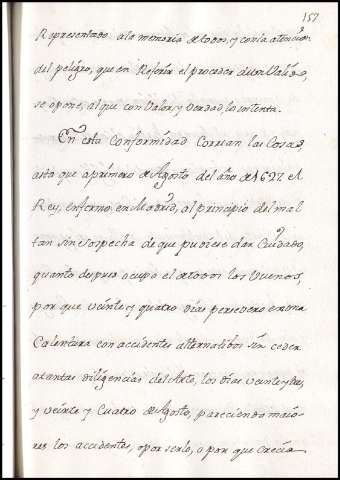 157
Representado ala memoria de todos, y con la atencion
del peligro, que en Referir el proceder de un Valido,
se opone, al que con Valor, y verdad, lo intenta.
En esta Conformidad Corrian las Cosas,
asta que a primero de Agosto del año de 1627. el
Rey, enfermo en Madrid, al principio del mal
tan sin sospecha de que pudiese dar Cuidado,
quanto despues ocupo el de todos los Buenos,
por que veinte y quatro dias persevero en una
Calentura con accidentes alternatibos sin ceder
atantas diligencias del Arte, los dias veinte y tres,
y veinte y Cuatro de Agosto, pareciendo maio-
res los accidentes, o por serlo, o por que crecia